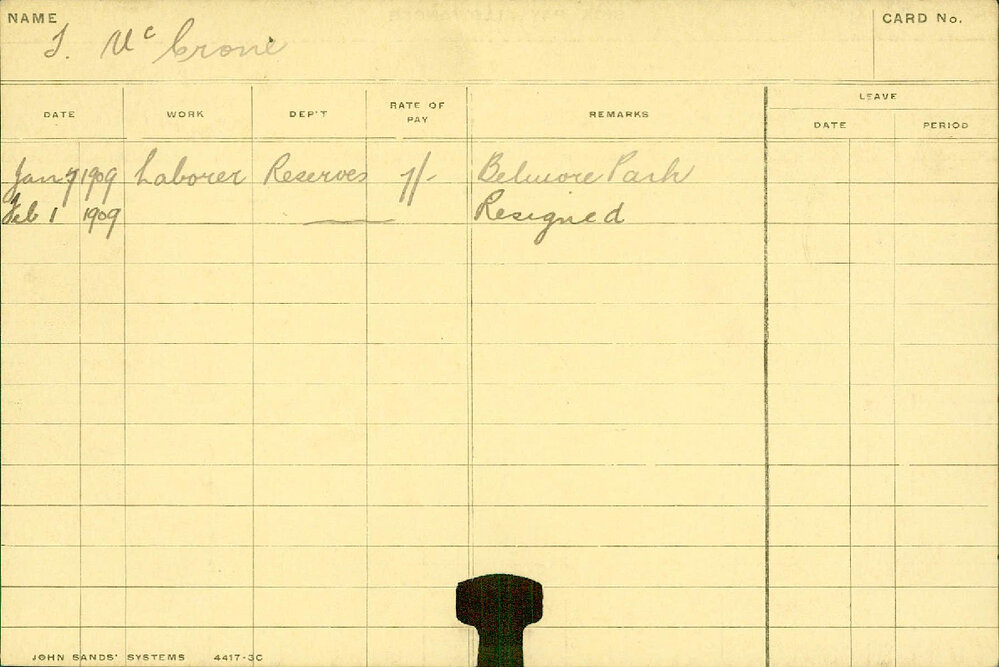 NAME
J. McCrone
CARD No.
DATE WORK DEP'T RATE OF PAY REMARKS LEAVE
DATE PERIOD
Jan 7 1909 Laborer Reserves 7/- Belmore Park
Feb 1 1909 Resigned
JOHN SANDS' SYSTEMS 4417-3C